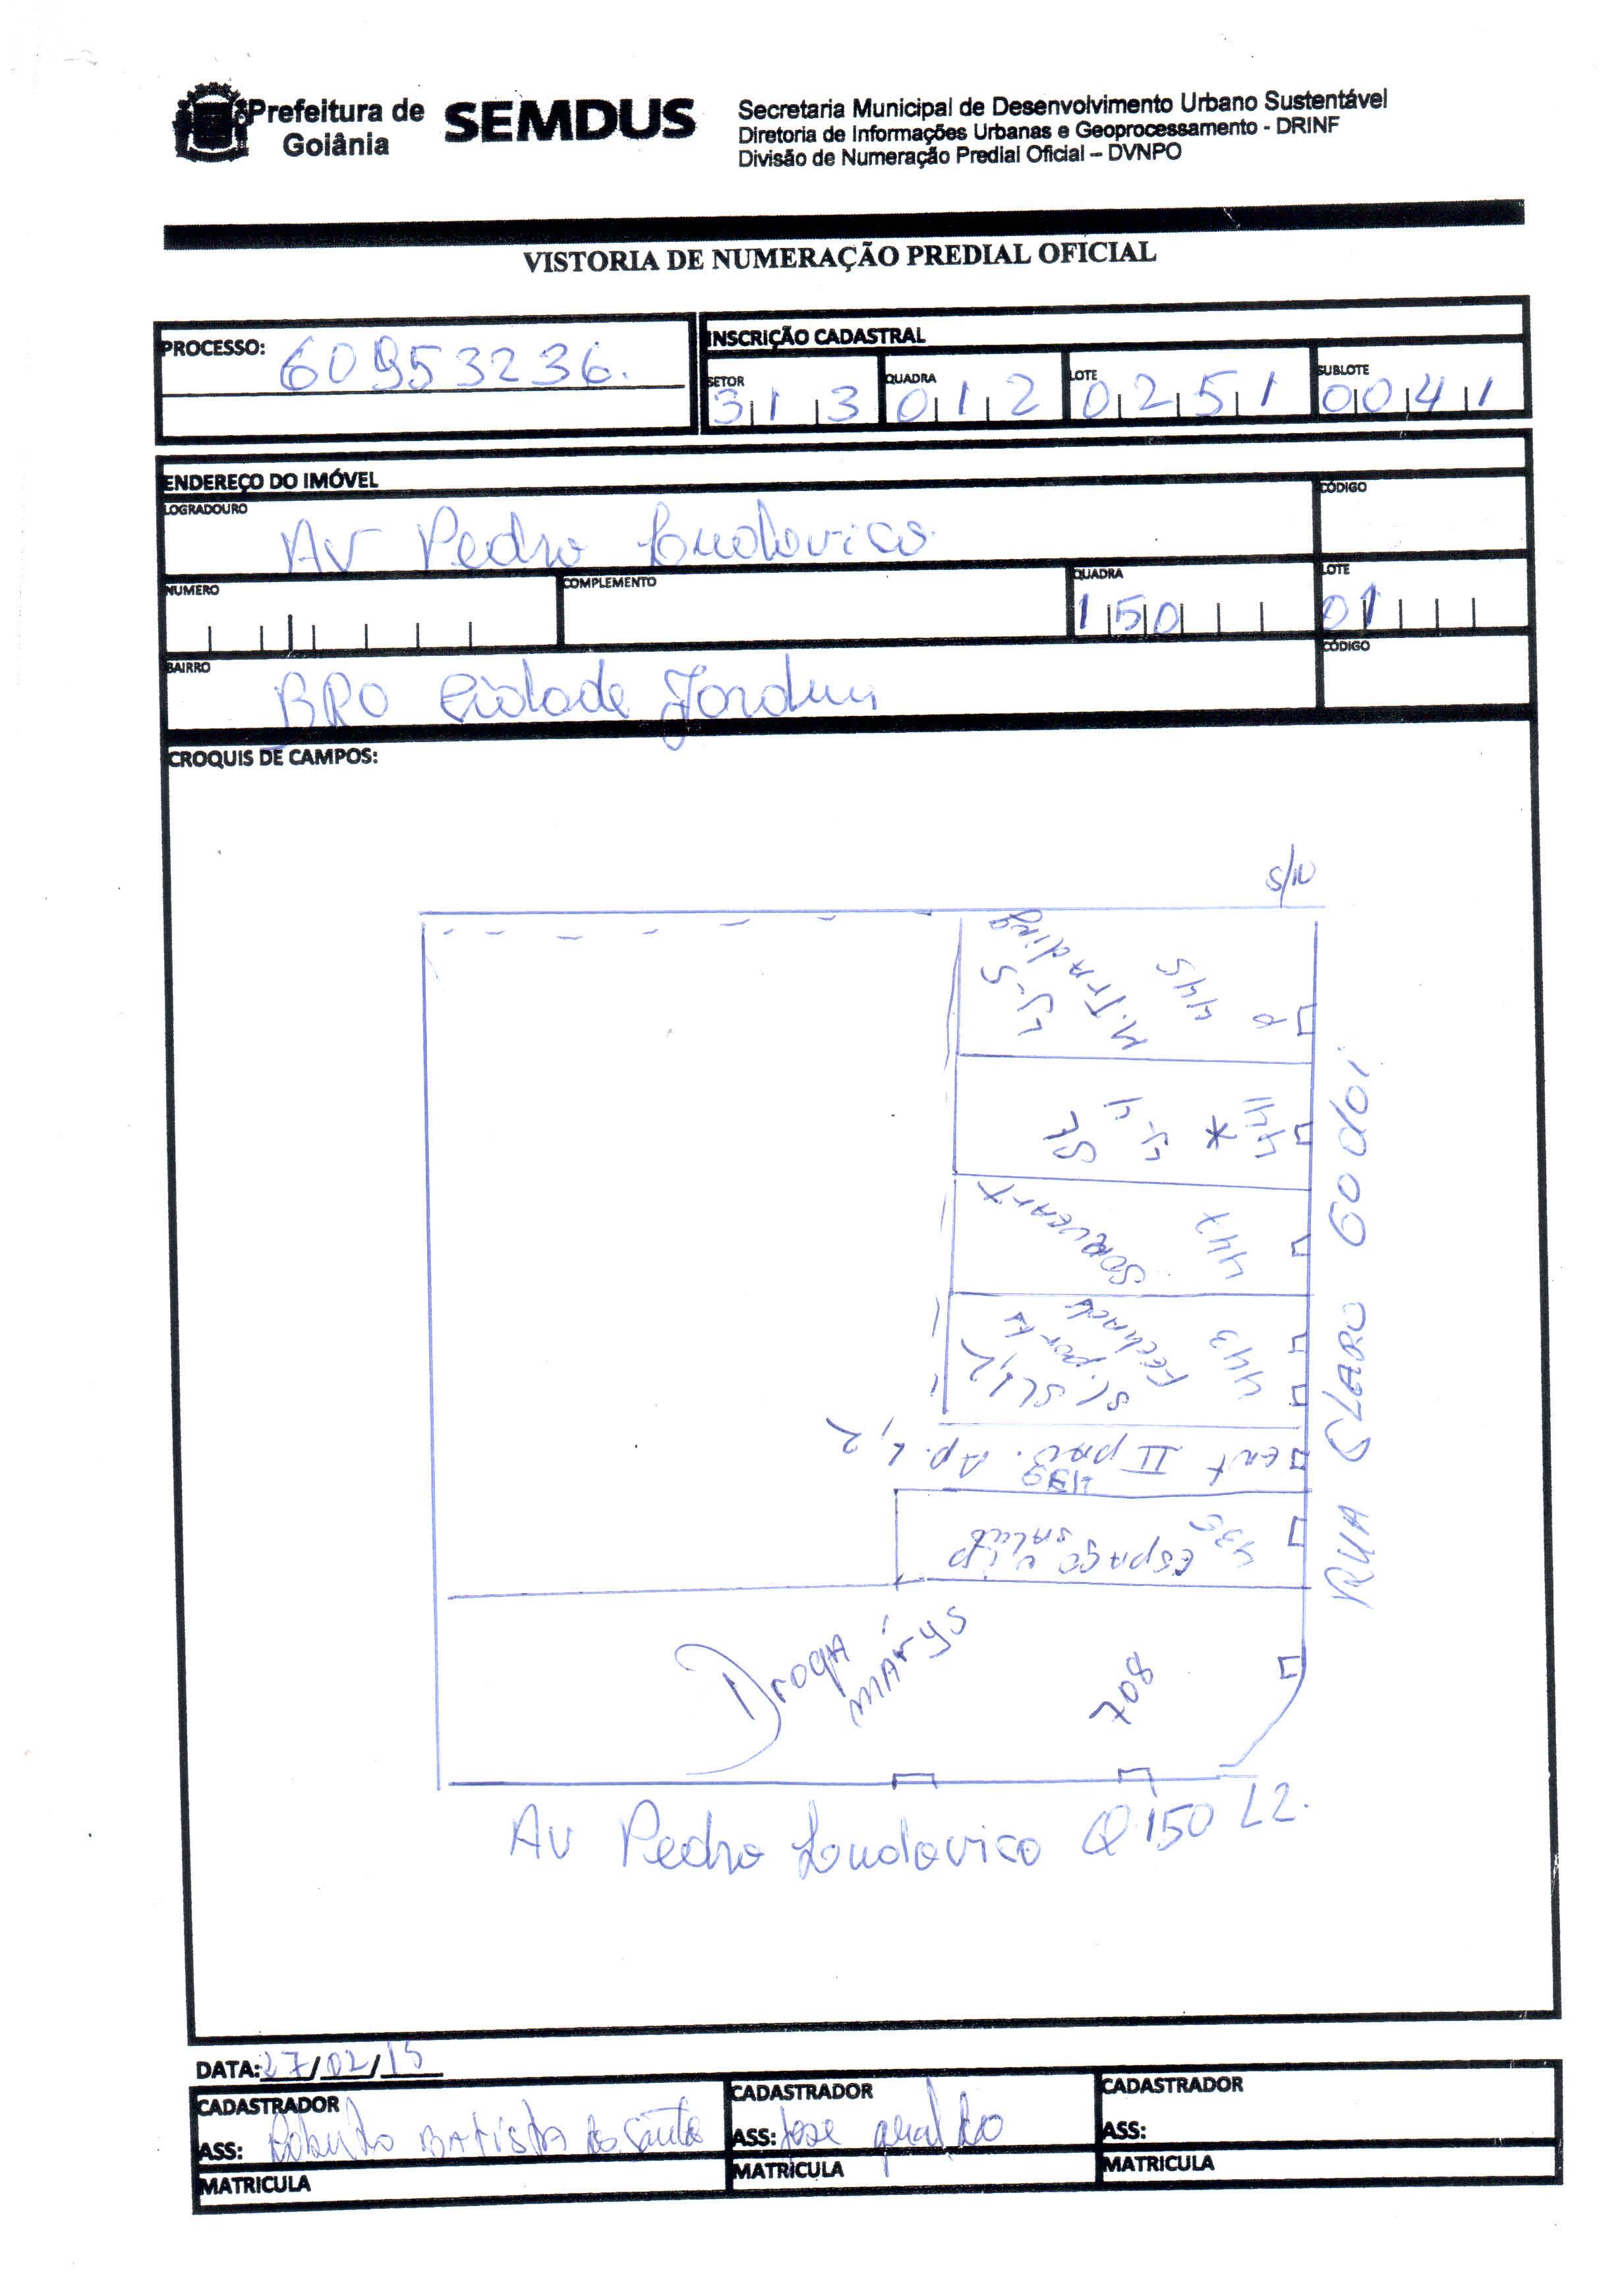 Prefeitura de
Goiânia
SEMDUS
Secretaria Municipal de Desenvolvimento Urbano Sustentável
Diretoria de Informações Urbanas e Geoprocessamento - DRINF
Divisão de Numeração Predial Oficial – DVNPO
VISTORIA DE NUMERAÇÃO PREDIAL OFICIAL
PROCESSO: 60953236.
INSCRIÇÃO CADASTRAL
SETOR QUADRA LOTE SUBLOTE
313 012 0251 0041
ENDEREÇO DO IMÓVEL
LOGRADOURO CÓDIGO
AV Pedro Ludovico
NUMERO COMPLEMENTO QUADRA LOTE
150 01
BAIRRO CÓDIGO
BRO Cidade Jardim
CROQUIS DE CAMPOS:
S/N
M. Trading
445
441
*
SL
SORVEART
447
Fechada
porta
443
SL 1,2
ent II pav. Ap. 1,2
439
435
ESPAÇO VIP
RUA CLARO GODOI
Droga
márys
708
Av Pedro Ludovico Q 150 L2.
DATA: 27/02/15
CADASTRADOR CADASTRADOR CADASTRADOR
ASS: Batista dos Santos ASS: Jose geraldo ASS:
MATRICULA MATRICULA MATRICULA